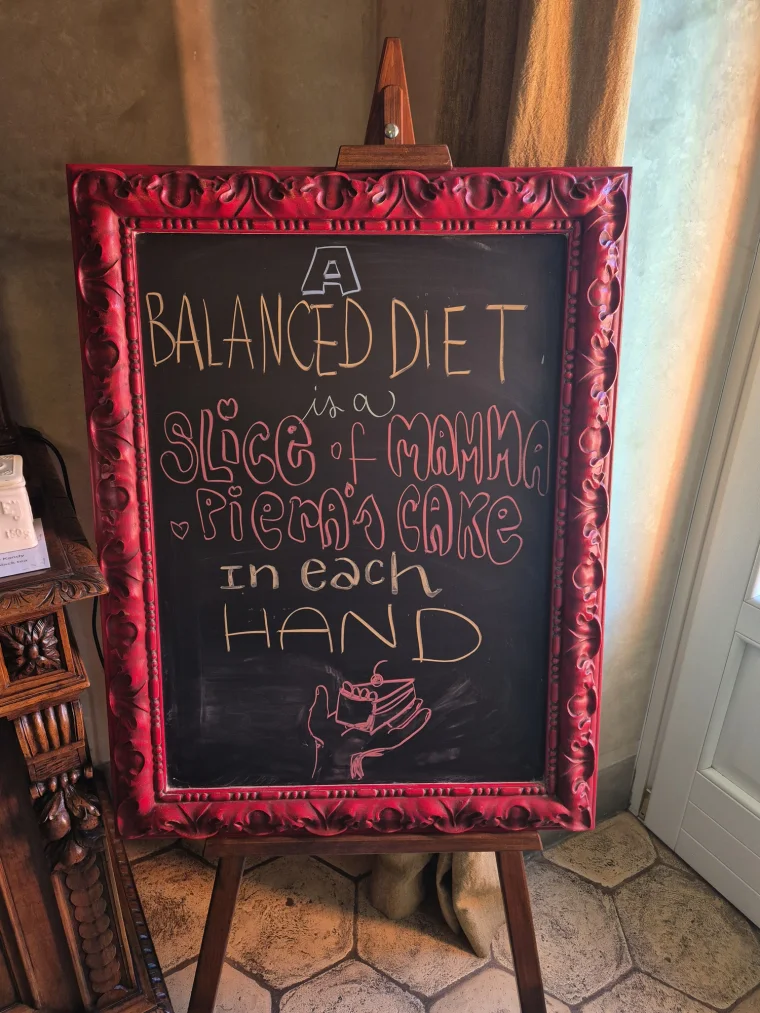 A
BALANCED DIET
is a
SLiCE of MAMMA
PiErA's CAKe
In each
HAND